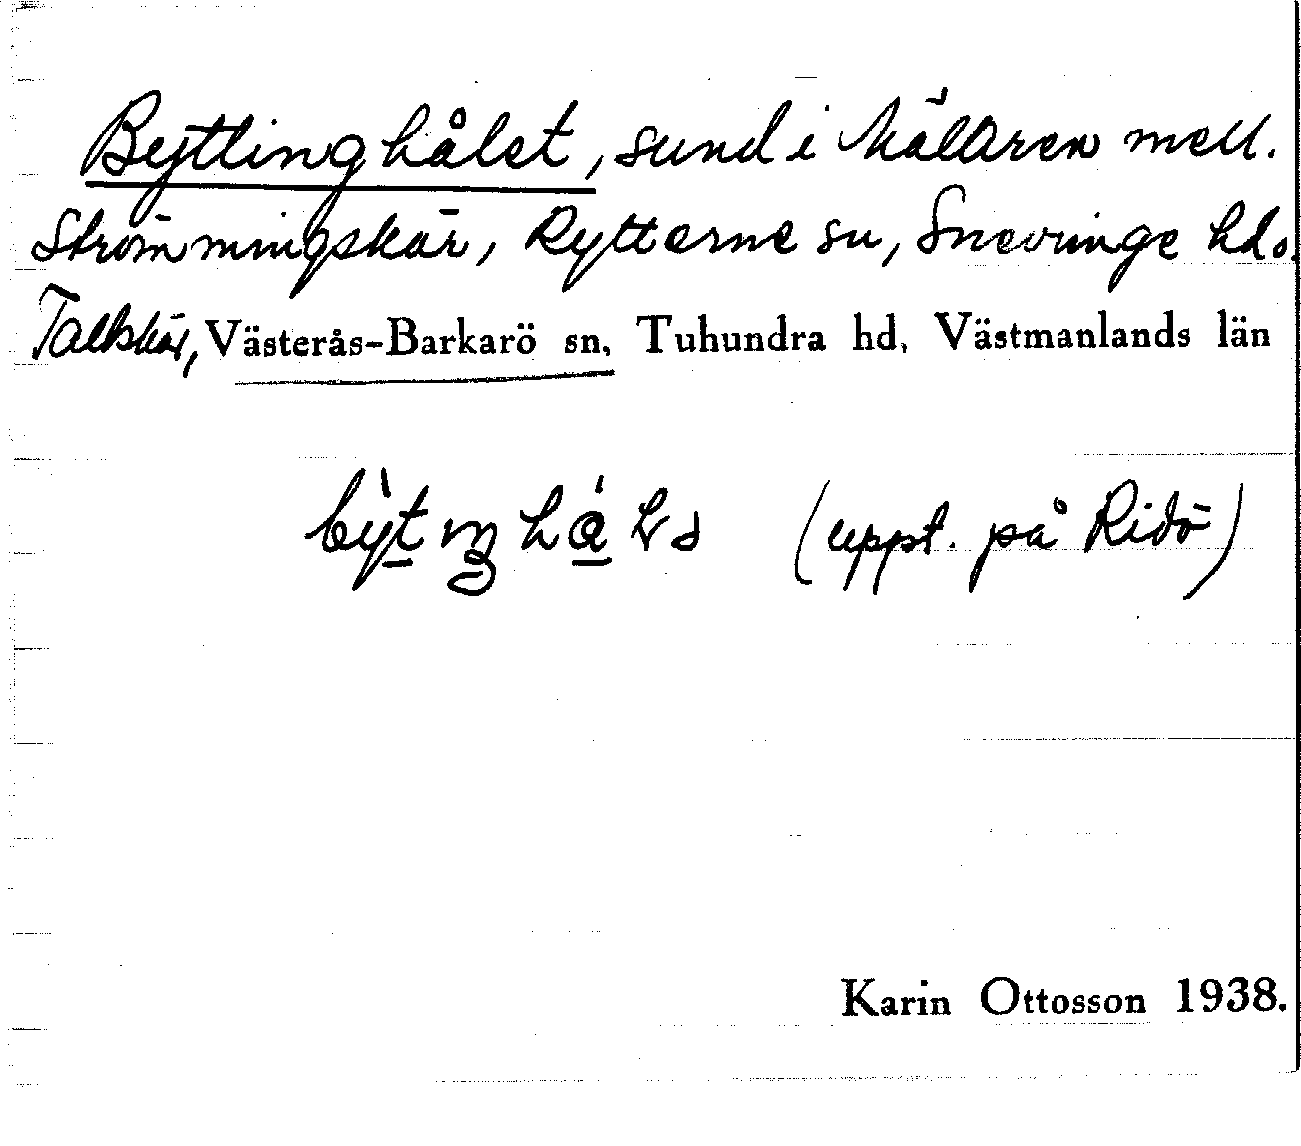 Bytlinghålet, sund i Mälaren mell.
Strömmingskär, Rytterne sn, Snevringe hd o.
Talkskär, Västerås-Barkarö sn, Tuhundra hd, Västmanlands län
(uppt. på Ridö)
Karin Ottosson 1938.